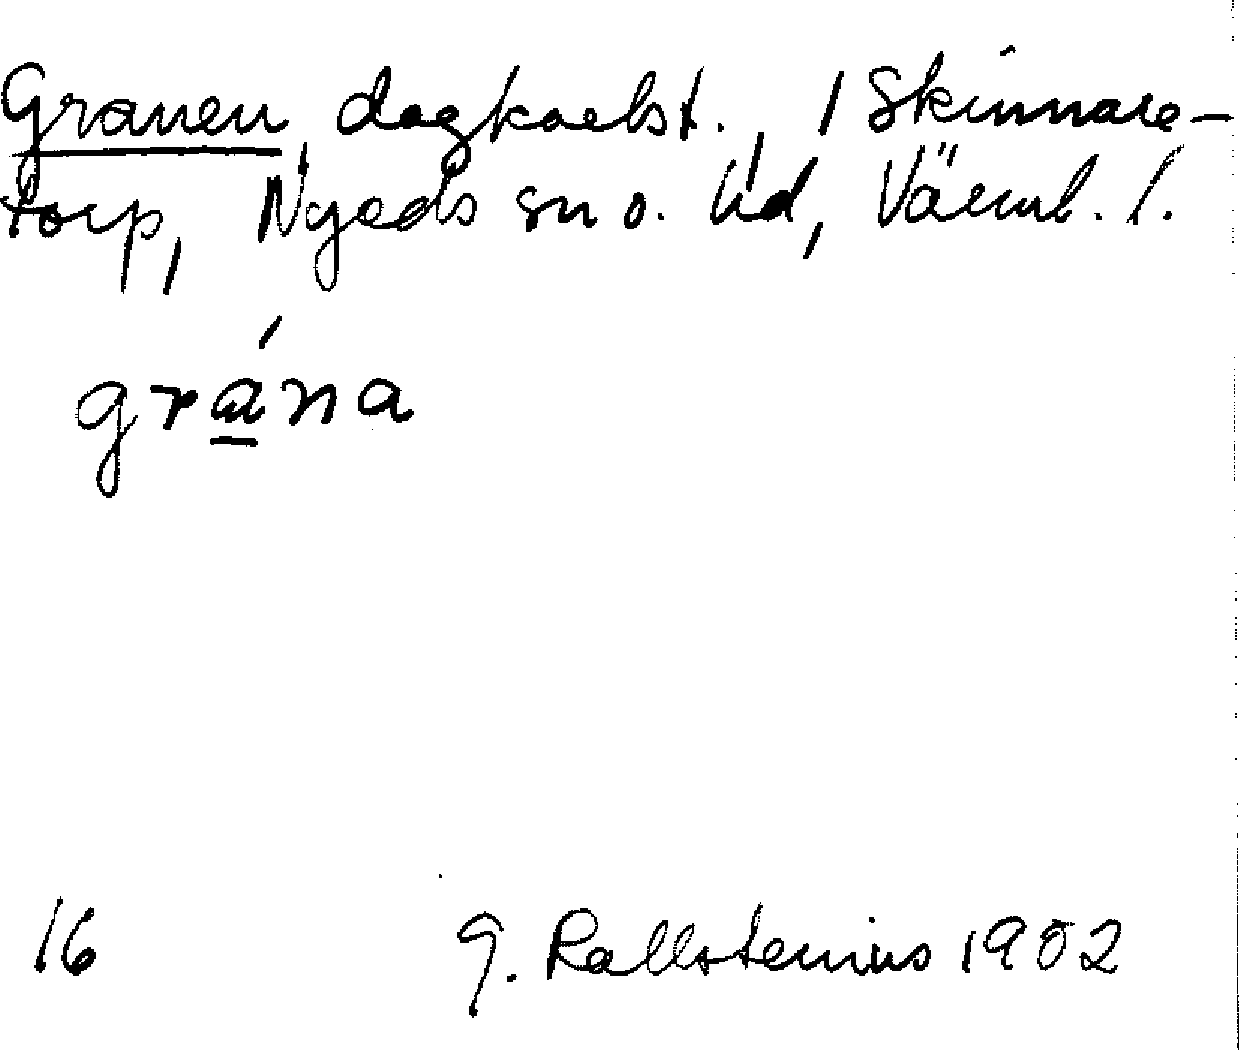 Granen, dagkarlst., 1 Skinnare-
torp, Nyeds sn o. hd, Värml. l.
grána
16 G. Kallstenius 1902